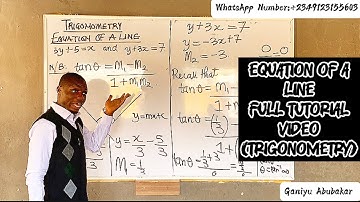 WhatsApp Number:+2349123155603
TRIGONOMETRY
EQUATION OF A LINE
3y+5=x and y+3x=7
N/B: tanθ = M₁-M₂
1+M₁M₂
y=mx+c
y=x/3 - 5/3
M₁=1/3
y+3x=7
y=-3x+7
M₂=-3
Recall that
tanθ = M₁-
1+
tanθ = (1/3)
1+
tanθ =
EQUATION OF A
LINE
FULL TUTORIAL
VIDEO
(TRIGONOMETRY)
Ganiyu Abubakar